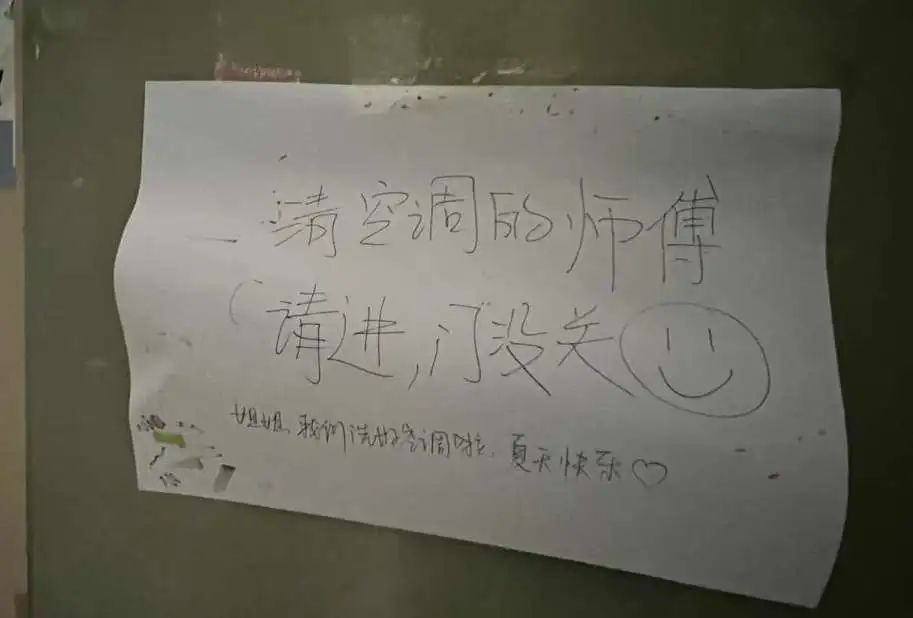 清空调的师傅
请进,门没关
姐姐,我们洗好空调啦,夏天快乐♡